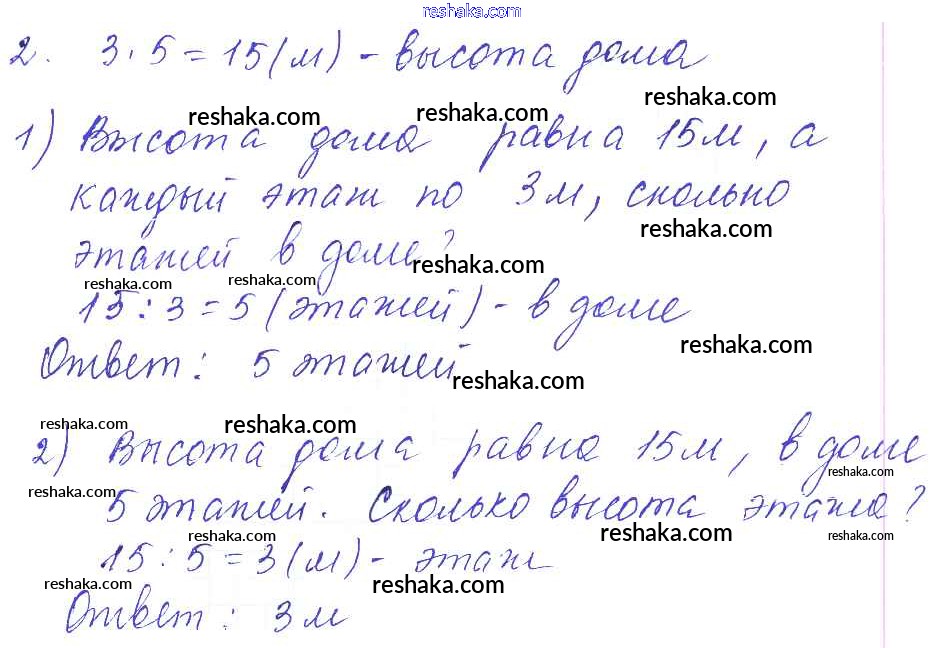 reshaka.com
2. 3 · 5 = 15 (м) - высота дома
reshaka.com
reshaka.com
reshaka.com
1) Высота дома равна 15 м, а
каждый этаж по 3 м, сколько
reshaka.com
этажей в доме?
reshaka.com
reshaka.com
reshaka.com
15 : 3 = 5 (этажей) - в доме
reshaka.com
Ответ: 5 этажей
reshaka.com
reshaka.com
reshaka.com
2) Высота дома равна 15 м, в доме
reshaka.com
reshaka.com
5 этажей. Сколько высота этажа?
reshaka.com
reshaka.com
reshaka.com
15 : 5 = 3 (м) - этаж
reshaka.com
reshaka.com
Ответ: 3 м